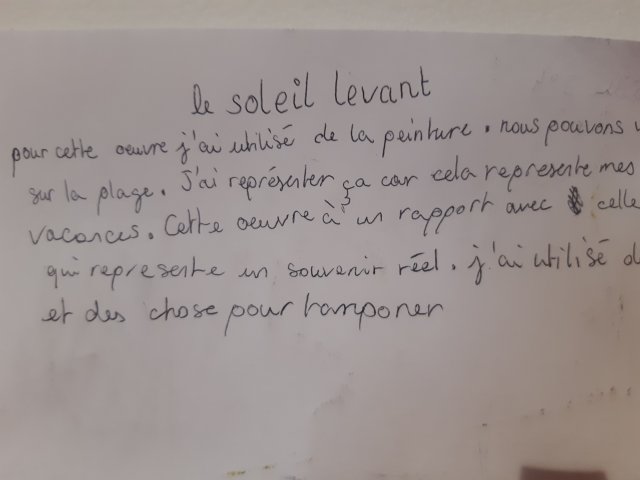 le soleil levant
pour cette oeuvre j'ai utilisé de la peinture. nous pouvons
sur la plage. J'ai représenter ça car cela represente mes
vacances. Cette oeuvre à un rapport avec celle
qui represente un souvenir réel. j'ai utilisé
et des chose pour tamponer